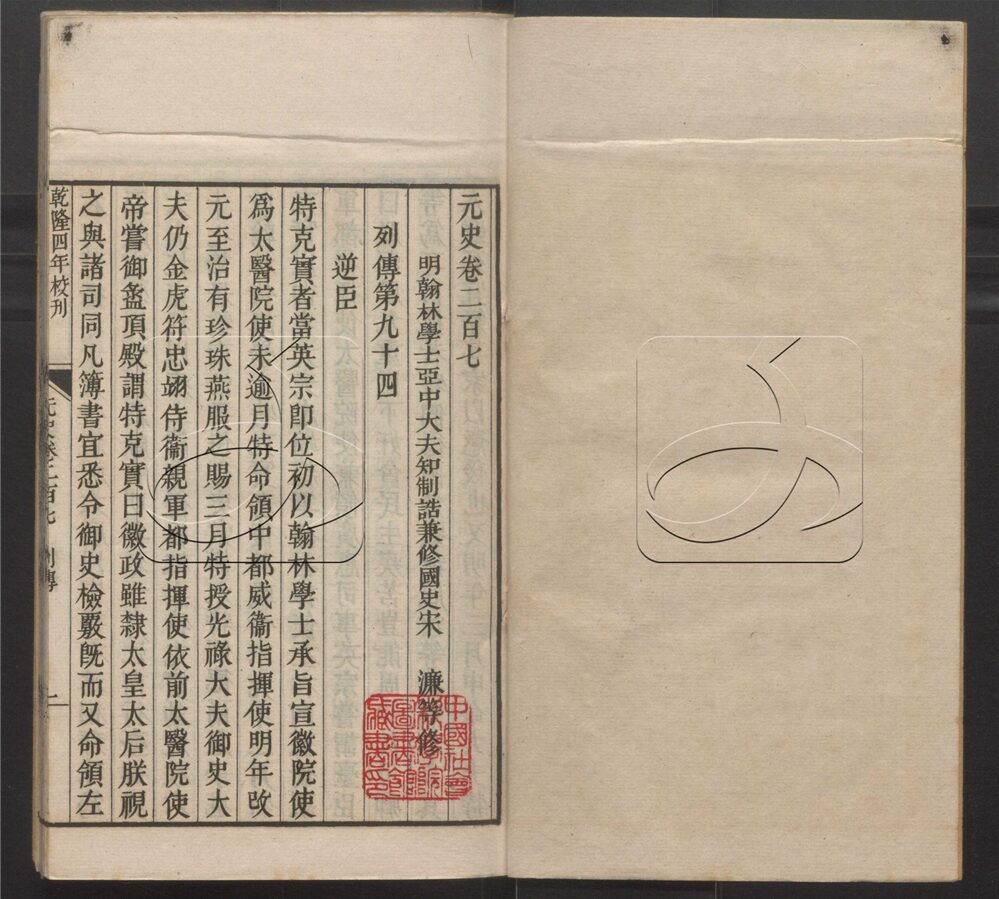 元史卷二百七
明翰林學士亞中大夫知制誥兼修國史宋　濂等修
列傳第九十四
逆臣
特克實者當英宗卽位初以翰林學士承旨宣徽院使
爲太醫院使未逾月特命領中都威衞指揮使明年改
元至治有珍珠燕服之賜三月特授光祿大夫御史大
夫仍金虎符忠翊侍衞親軍都指揮使依前太醫院使
帝嘗御盝頂殿謂特克實曰徽政雖隸太皇太后朕視
之與諸司同凡簿書宜悉令御史檢覈旣而又命領左
乾隆四年校刊
元史卷二百七　列傳
一
中國社會
科學院
圖書館
藏書印